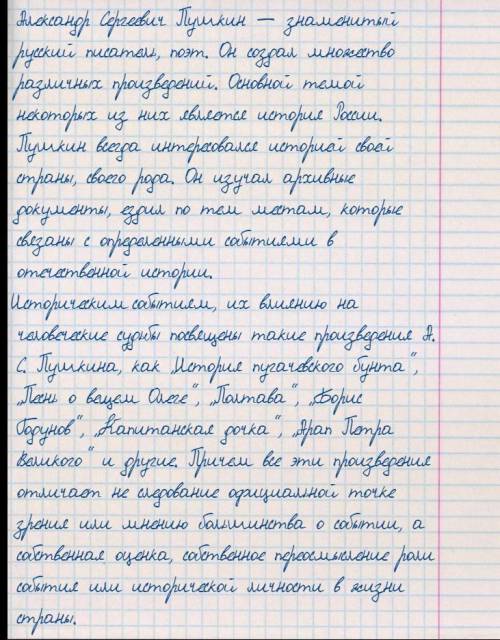 Александр Сергеевич Пушкин — знаменитый
русский писатель, поэт. Он создал множество
различных произведений. Основной темой
некоторых из них является история России.
Пушкин всегда интересовался историей своей
страны, своего рода. Он изучал архивные
документы, ездил по тем местам, которые
связаны с определенными событиями в
отечественной истории.
Историческим событиям, их влиянию на
человеческие судьбы посвящены такие произведения А.
С. Пушкина, как „История пугачевского бунта“,
„Песнь о вещем Олеге“, „Полтава“, „Борис
Годунов“, „Капитанская дочка“, „Арап Петра
Великого“ и другие. Причем все эти произведения
отличает не следование официальной точке
зрения или мнению большинства о событии, а
собственная оценка, собственное переосмысление роли
события или исторической личности в жизни
страны.